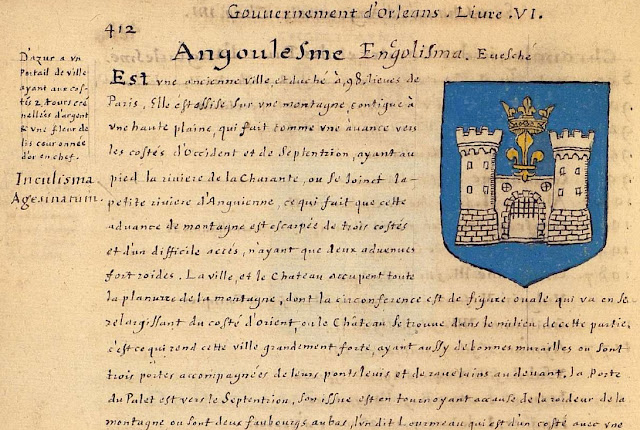 Gouvernement d'Orleans. Liure. VI.
412
Angoulesme Engolisma. Euesché
D'azur a vn
Portail de ville
ayant aux cos-
tés 2 tours cré
nellées d'argent
& vne fleur de
lis couronnée
d'or en chef.
Inculisma
Agesinatum.
Est vne ancienne ville, et duché à, 98, lieues de
Paris, Elle est assise sur vne montagne, contigue à
vne haute plaine, qui fait comme vne auance vers
les costés d'Occident et de Septentrion, ayant au
pied la riuiere de la Charante, ou se Joinct la
petite riuiere d'Anguienne, ce qui fait que cette
aduance de montagne est escarpée de trois costés
et d'un difficile accés, n'ayant que deux aduenues
fort roides. La ville, et le Chateau occupent toute
la planure de la montagne, dont la circonference est de figure ouale qui va en se
relargissant du costé d'Orient, ou le Château se trouue dans le milieu de cette partie,
c'est ce qui rend cette ville grandement forte, ayant aussy de bonnes murailles ou sont
trois portes accompagnées de leurs ponts leuis et de rauelains au deuant. la Porte
du Palet est vers le Septentrion, son issue est en tournoyant a cause de la roideur de la
montagne ou sont deux faubourgs au bas, l'un dit Loumeau qui est d'un costé auec vne